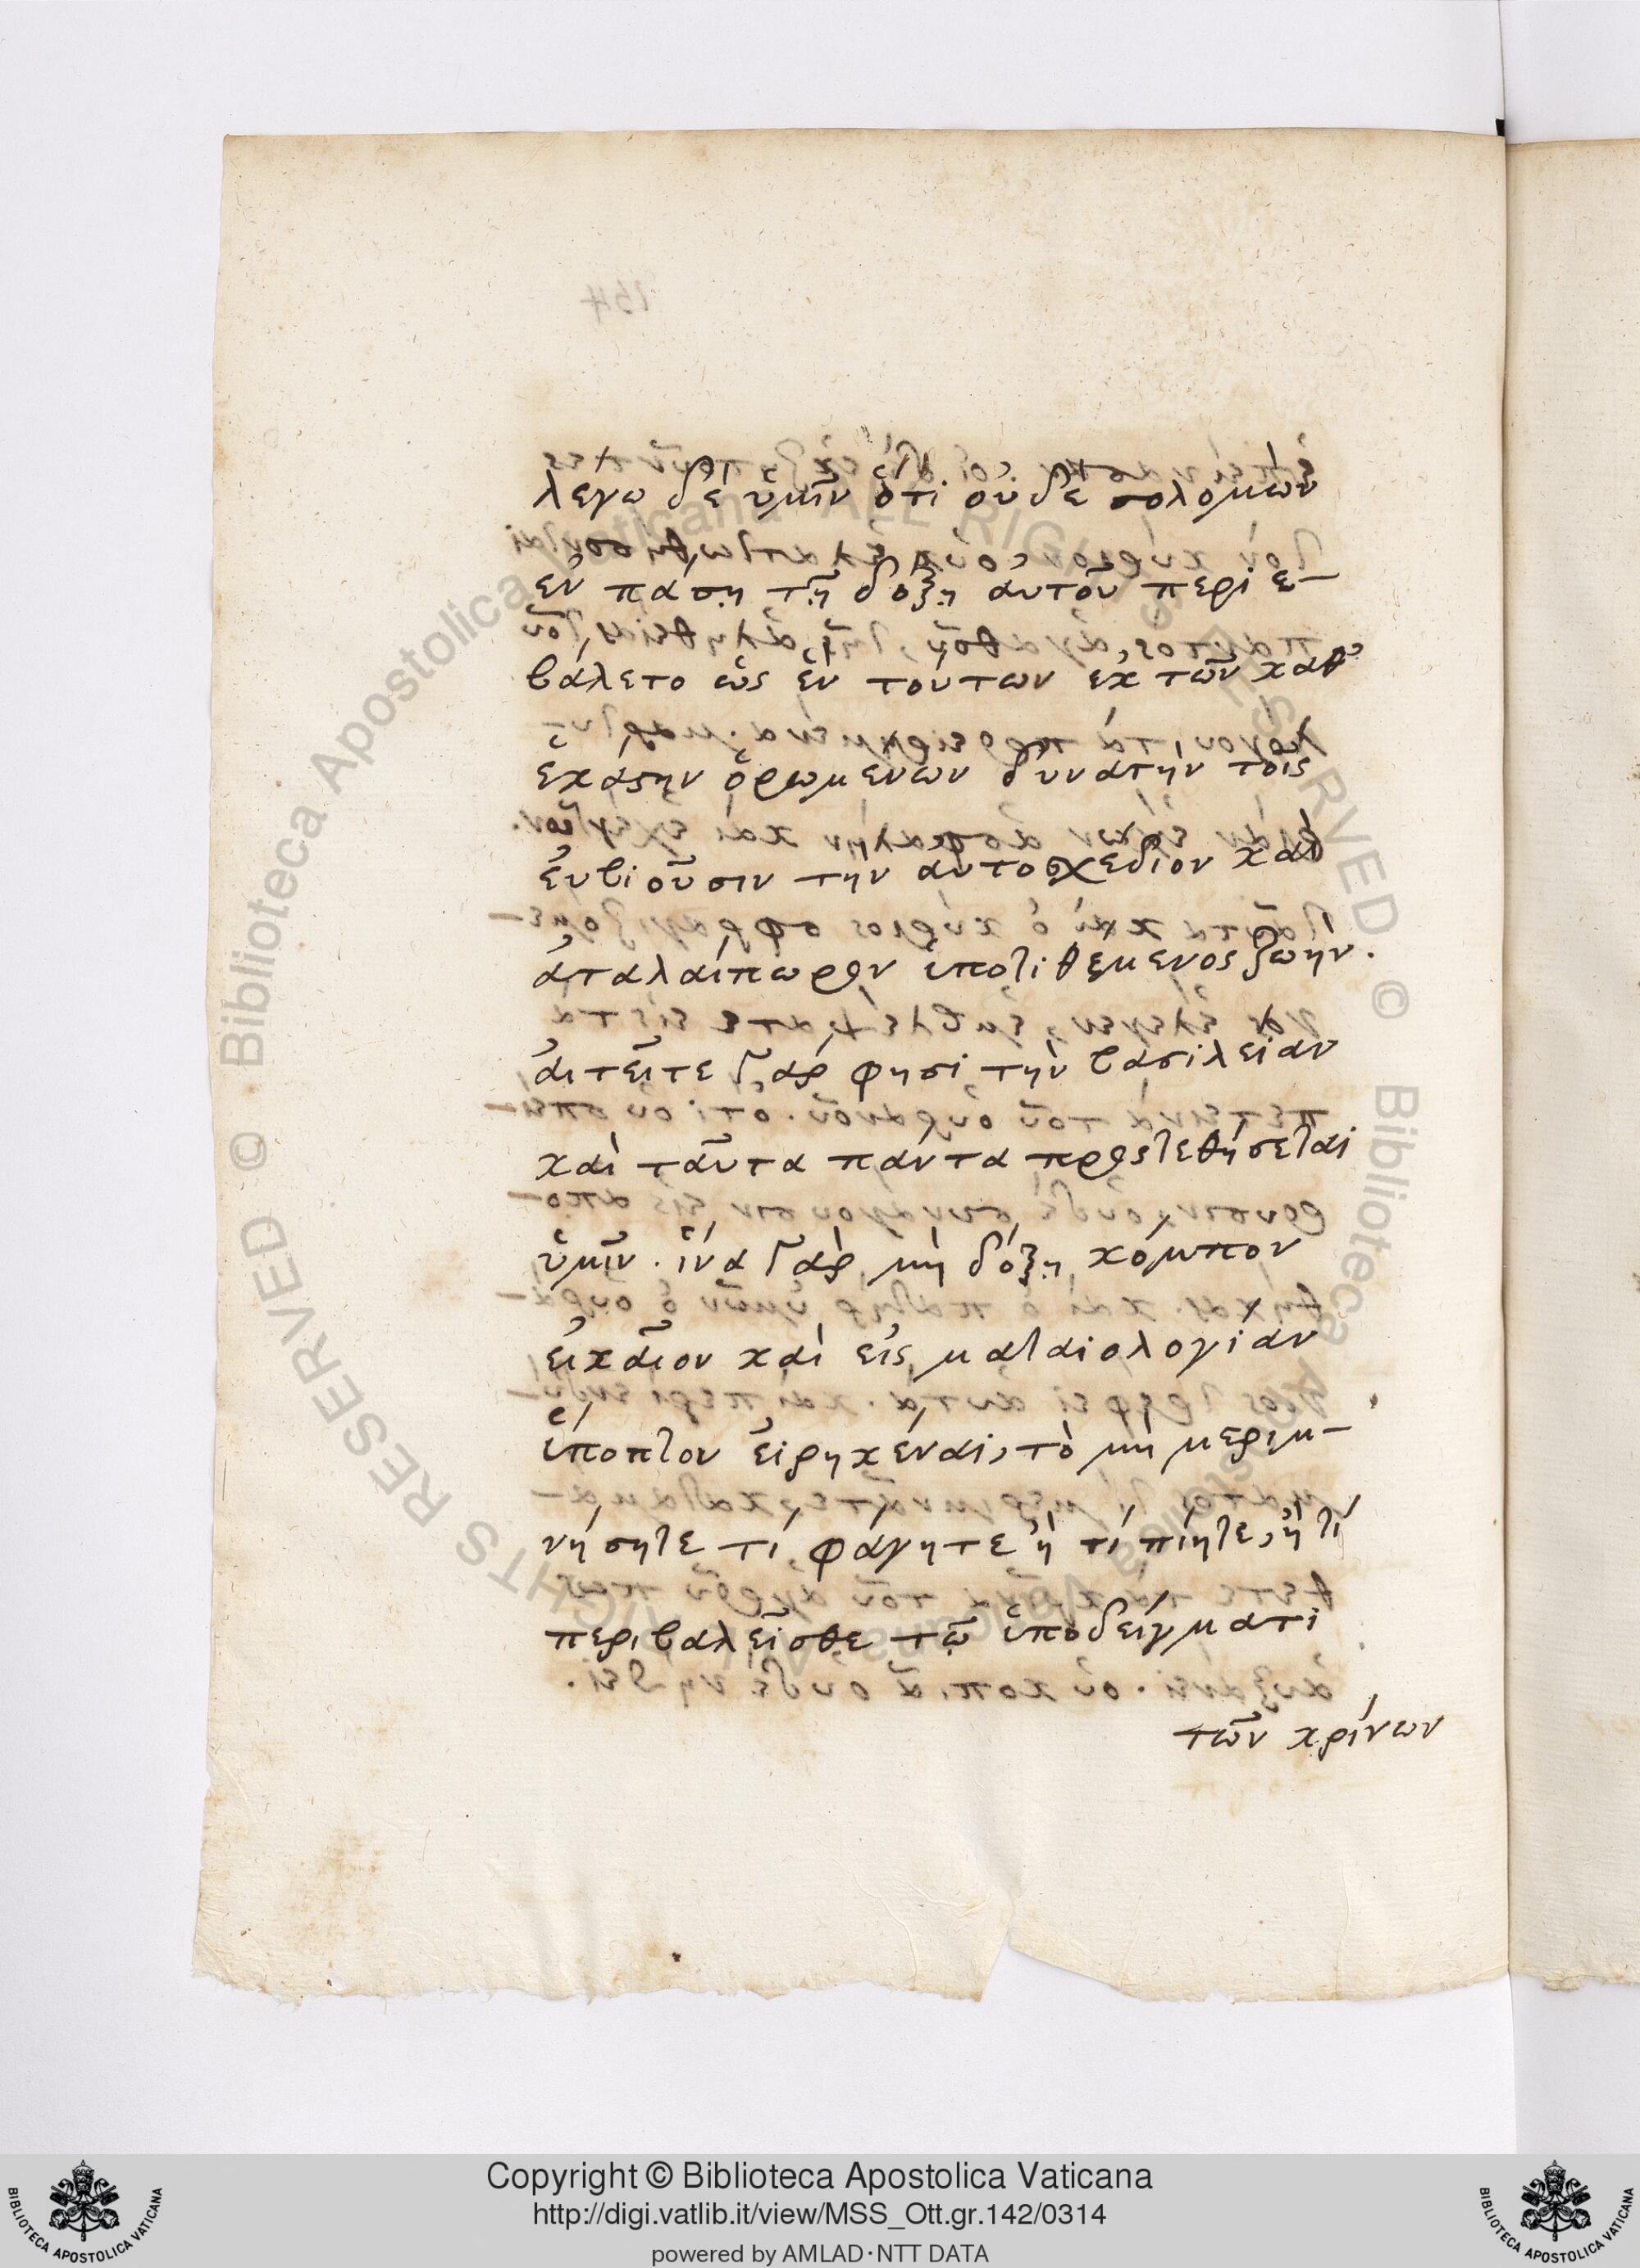 λέγω δὲ ὑμῖν ὅτι οὐδὲ σολομὼν
ἐν πάσῃ τῇ δόξῃ ἀυτοῦ περιε-
βάλετο ὡς ἓν τούτων ἐκ τῶν καθ'
ἑκάστην ὁρωμένων δυνατὴν τοῖς
ἐυβιοῦσιν τὴν ἀυτοσχέδιον καὶ
ἀταλαίπωρον ὑποτιθέμενος ζωὴν.
ἀιτεῖτε γὰρ φησὶ τὴν βασιλείαν
καὶ ταῦτα πάντα προστεθήσεται
ὑμῖν. ἵνα γὰρ μὴ δόξῃ κόμπον
ἐικᾶιον καὶ εἰς ματαιολογίαν
ὕποπτον ἐιρηκέναι, τὸ μὴ μεριμ-
νήσητε τί φάγητε ἢ τί πίητε, ἢ τί
περιβαλεῖσθε τῷ ὑποδείγματι
τῶν κρίνων
Copyright © Biblioteca Apostolica Vaticana
http://digi.vatlib.it/view/MSS_Ott.gr.142/0314
powered by AMLAD·NTT DATA
BIBLIOTECA APOSTOLICA VATICANA
BIBLIOTECA APOSTOLICA VATICANA